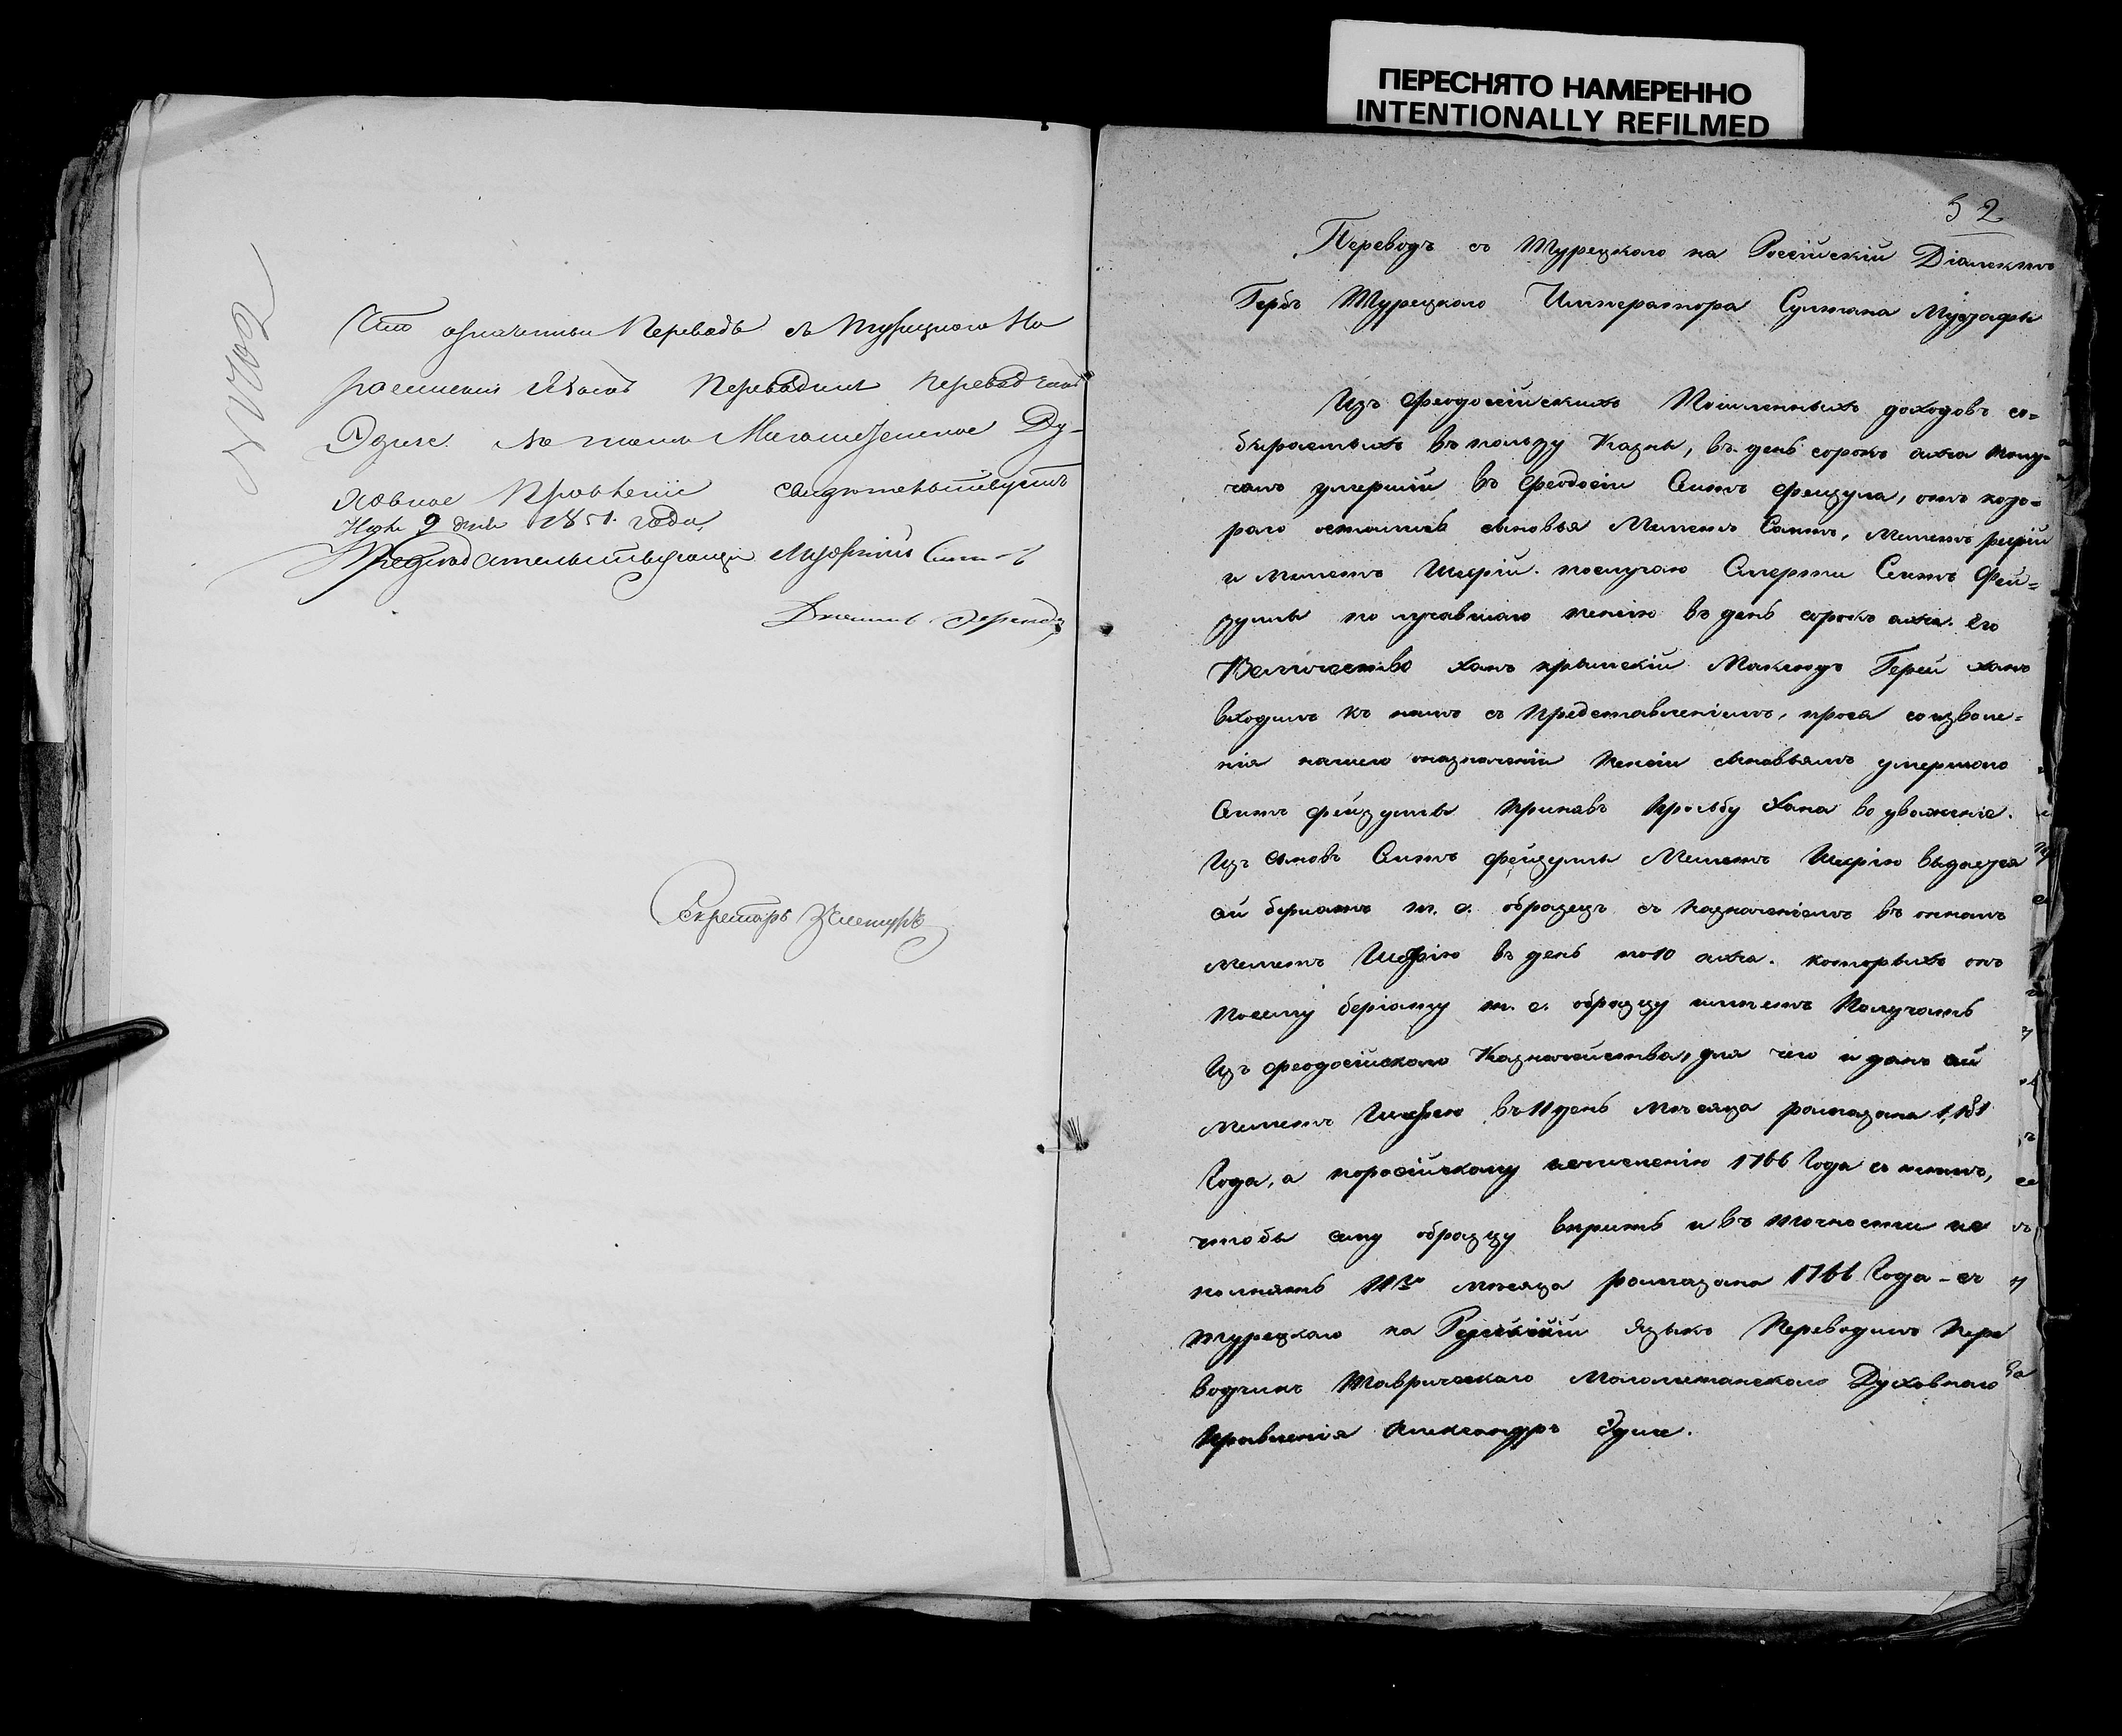 ПЕРЕСНЯТО НАМЕРЕННО
INTENTIONALLY REFILMED
Что означенный Переводъ съ Турецкого На
россійскій Языкъ Переводилъ Переводчикъ
Эдиге. въ томъ Магометанское Ду-
ховное Правленіе свидѣтельствуетъ
9 дня 1851. года
Председательствующій
Секретарь
52
Переводъ съ Турецкаго на Россійскій Діалектъ
Гербъ Турецкаго Императора Султана Мустафы
Изъ Феодосійскихъ Пошленныхъ доходовъ со=
бираемыхъ въ пользу Казны, въ день сорокъ акча полу-
чалъ умершій въ Феодосіи Сеитъ Фейзула, отъ кото=
раго остались сыновья Меметъ Саитъ, Меметъ
и Меметъ Шкрій. послучаю Смерти Сеитъ Фей=
зуллы получавшаго пенсію въ день сорокъ акча. Его
Величество ханъ крымскій Максудъ Герей ханъ
входитъ къ намъ съ представленіемъ, прося соизволе=
нія нашего оназначеніи пенсіи сыновьямъ умершаго
Сеитъ Фейзуллы принявъ прозьбу Хана во уваженіе.
Изъ сыновъ Сеитъ Фейзуллы Меметъ Шкрію выдается
сій берлатъ т. е. образецъ съ назначеніемъ въ ономъ
Меметъ Шкрію въ день по 10 акча. которыхъ онъ
посему беріату т. е. образцу имѣетъ Получать
Изъ феодосійскаго Казначейства, для чего и данъ сій
Меметъ Шкрію въ 11 день мѣсяца рамазана 1,181
Года, а поросійскому исчисленію 1766 Года съ темъ,
чтобы сему образцу верить и въ точности ис
полнять 11го мѣсяца рамазана 1766 Года - съ
турецкаго на Русскій Языкъ Переводилъ Пере
водчикъ Таврическаго Магометанскаго Духовнаго
Правленія Александръ Эдиге.